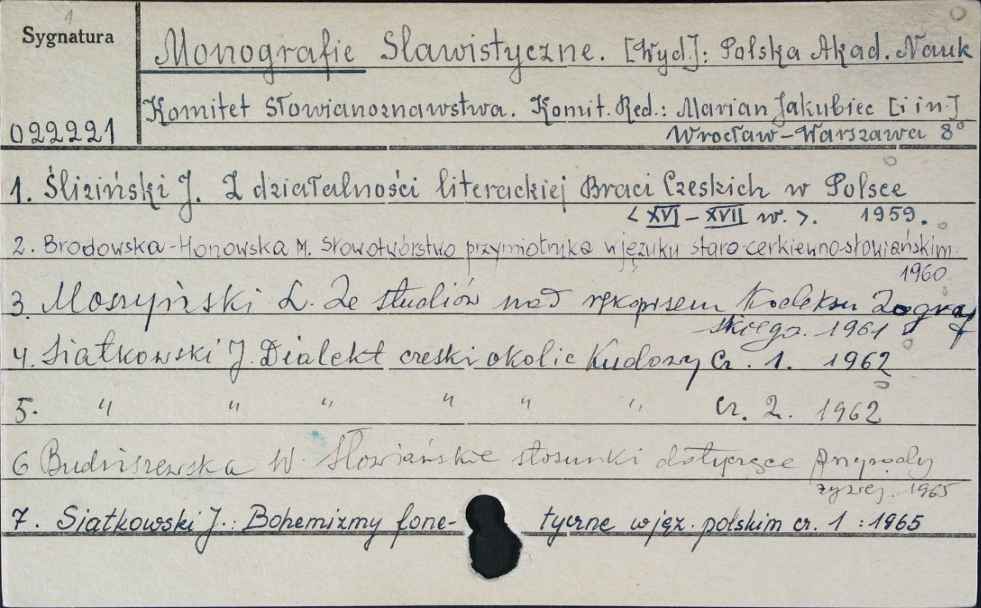 1
Sygnatura
Monografie Slawistyczne. [Wyd.]: Polska Akad. Nauk
Komitet Słowianoznawstwa. Komit. Red.: Marian Jakubiec [i in.]
022221
Wrocław-Warszawa 8°
1. Śliziński J. Z działalności literackiej Braci Czeskich w Polsce
<XVI-XVII w.>. 1959.
2. Brodowska-Honowska M. Słowotwórstwo przymiotnika w języku staro-cerkiewno-słowiańskim.
1960
3. Moszyński L. Ze studiów nad rękopisem Kodeksu Zograf
skiego. 1961
4. Siatkowski J. Dialekt czeski okolic Kudowy Cz. 1. 1962
5. " " " " " " Cz. 2. 1962
6 Budziszewska W. Słowiańskie słownki dotyczące przyrody
żywej. 1965
7. Siatkowski J.: Bohemizmy fone- tyczne w jęz. polskim cz. 1 : 1965